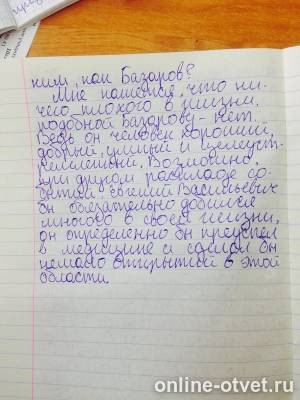 ким, как Базаров?
Мне кажется, что ни-
чего плохого в жизни,
подобной Базарову - нет.
Ведь он человек хороший,
добрый, умный и целеуст-
ремленный. Возможно,
при другом раскладе со-
бытий, Евгений Васильевич
бы обязательно добился
многого в своей жизни,
он определенно бы преуспел
в медицине и сделал бы
немало открытий в этой
области.
online-otvet.ru